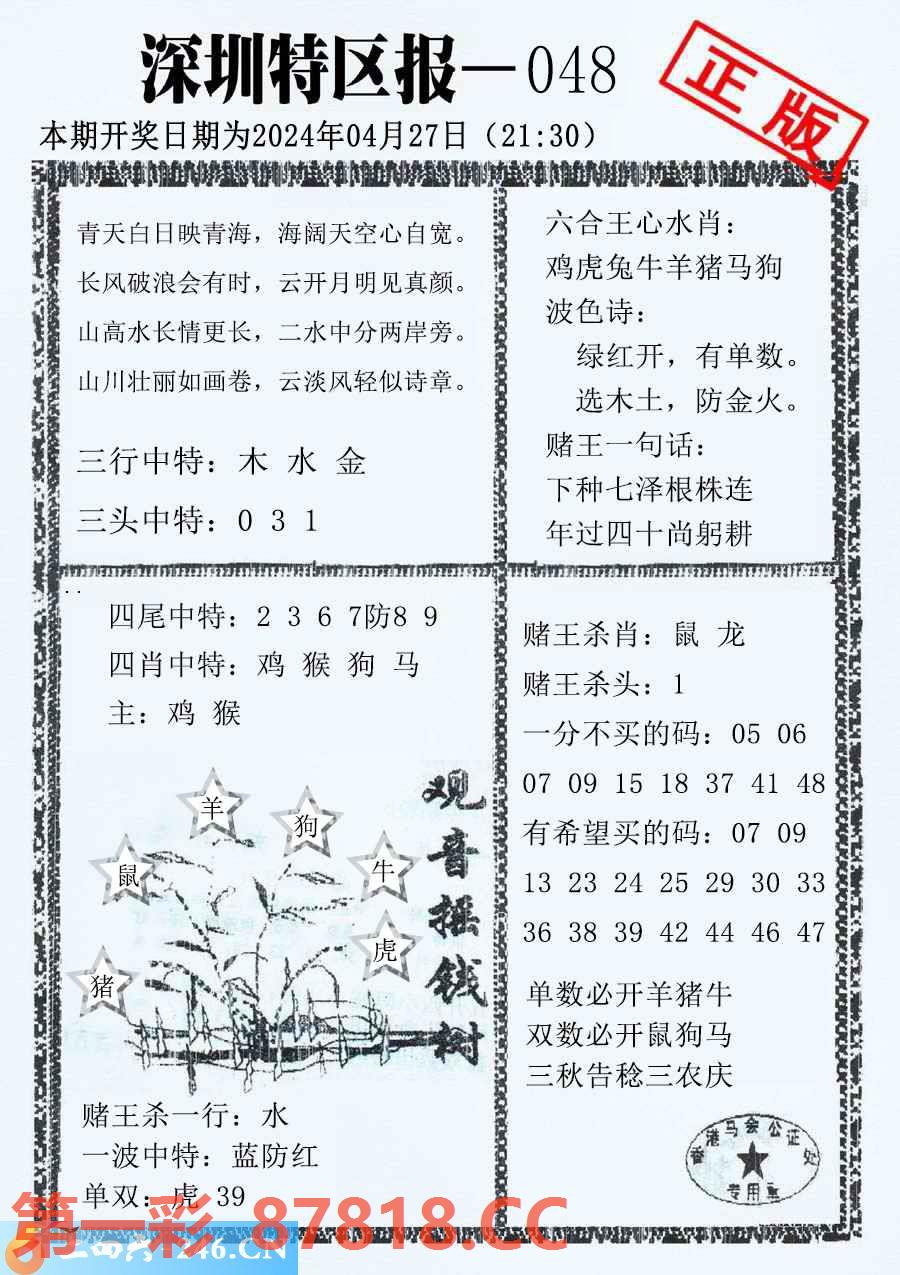 深圳特区报—048
正版
本期开奖日期为2024年04月27日（21:30）
青天白日映青海，海阔天空心自宽。
长风破浪会有时，云开月明见真颜。
山高水长情更长，二水中分两岸旁。
山川壮丽如画卷，云淡风轻似诗章。
三行中特：木 水 金
三头中特：0 3 1
六合王心水肖：
鸡虎兔牛羊猪马狗
波色诗：
绿红开，有单数。
选木土，防金火。
赌王一句话：
下种七泽根株连
年过四十尚躬耕
四尾中特：2 3 6 7防8 9
四肖中特：鸡 猴 狗 马
主：鸡 猴
观音摇钱树
羊
狗
鼠
牛
虎
猪
赌王杀一行：水
一波中特：蓝防红
单双：虎 39
赌王杀肖：鼠 龙
赌王杀头：1
一分不买的码：05 06
07 09 15 18 37 41 48
有希望买的码：07 09
13 23 24 25 29 30 33
36 38 39 42 44 46 47
单数必开羊猪牛
双数必开鼠狗马
三秋告稔三农庆
香港马会公证处
专用章
第一彩 87818.CC
246.CN